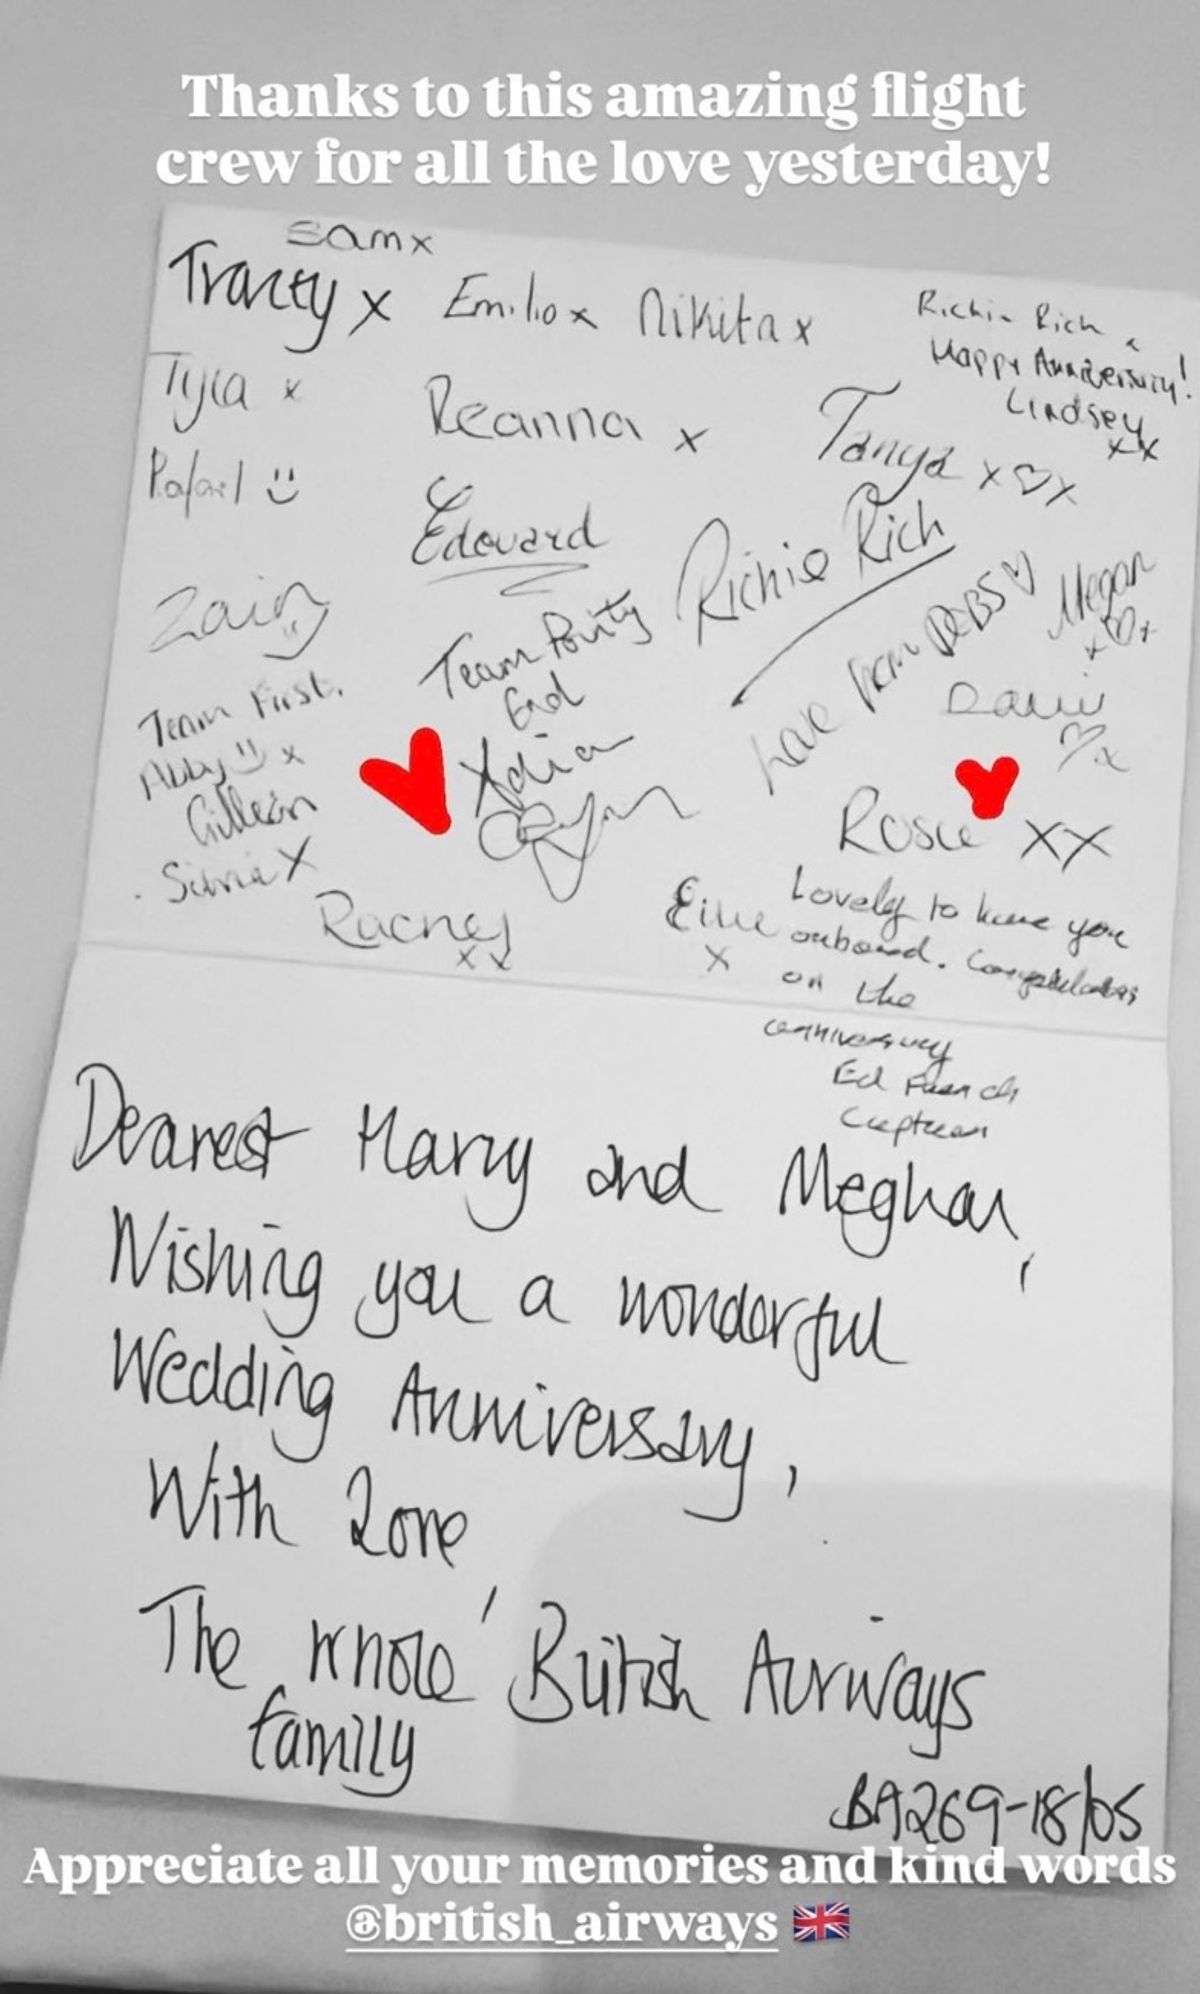 Thanks to this amazing flight
crew for all the love yesterday!
Sam x
Tracey x Emilio x Nikita x
Richie Rich
Happy Anniversary!
Lindsey
xx
Tyla x
Reanna x
Tanya x♡x
Rafael :)
Edouard
Richie Rich
Zain
Love from DEBS♡
Megan
x♡x
Team Party
End
Team First.
Abby :) x
Gillean
Silvia X
Rosie XX
Ellie
x
Lovely to have you
onboard. Congratulations
on the
anniversary
Ed French
Captain
Dearest Harry and Meghan,
Wishing you a wonderful
Wedding Anniversary,
With Love,
The whole British Airways
family
BA269-18/05
Appreciate all your memories and kind words
@british_airways 🇬🇧